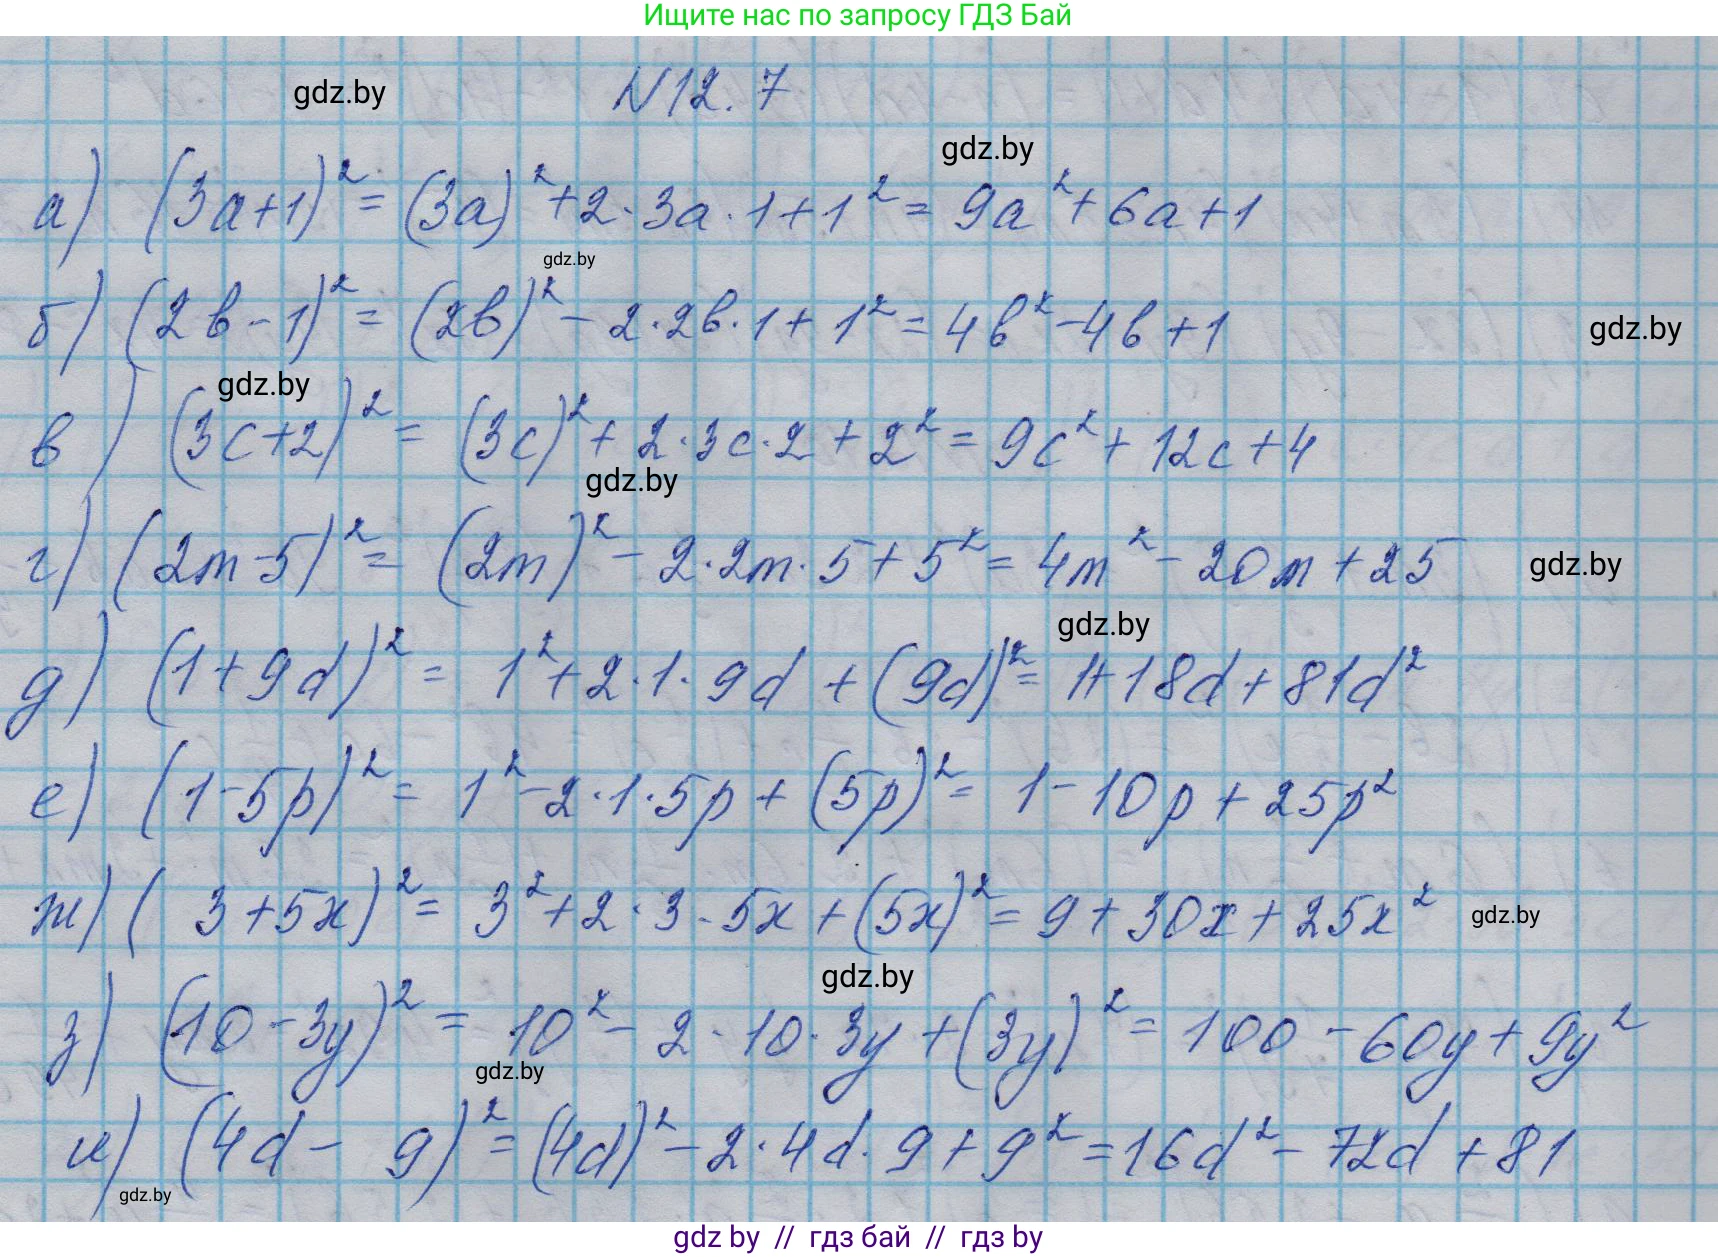 Ищите нас по запросу ГДЗ Бай
gdz.by
N12.7
gdz.by
а) (3a+1)² = (3a)² + 2·3a·1+1² = 9a² + 6a + 1
gdz.by
б) (2в-1)² = (2в)² - 2·2в·1 + 1² = 4в² - 4в + 1
gdz.by
gdz.by
в) (3c+2)² = (3c)² + 2·3c·2 + 2² = 9c² + 12c + 4
gdz.by
г) (2m-5)² = (2m)² - 2·2m·5 + 5² = 4m² - 20m + 25
gdz.by
gdz.by
д) (1+9d)² = 1² + 2·1·9d + (9d)² = 1+18d + 81d²
е) (1-5p)² = 1² - 2·1·5p + (5p)² = 1 - 10p + 25p²
ж) (3+5x)² = 3² + 2·3·5x + (5x)² = 9 + 30x + 25x²
gdz.by
gdz.by
з) (10-3y)² = 10² - 2·10·3y + (3y)² = 100 - 60y + 9y²
gdz.by
и) (4d - 9)² = (4d)² - 2·4d·9 + 9² = 16d² - 72d + 81
gdz.by
gdz by // гдз бай // гдз by